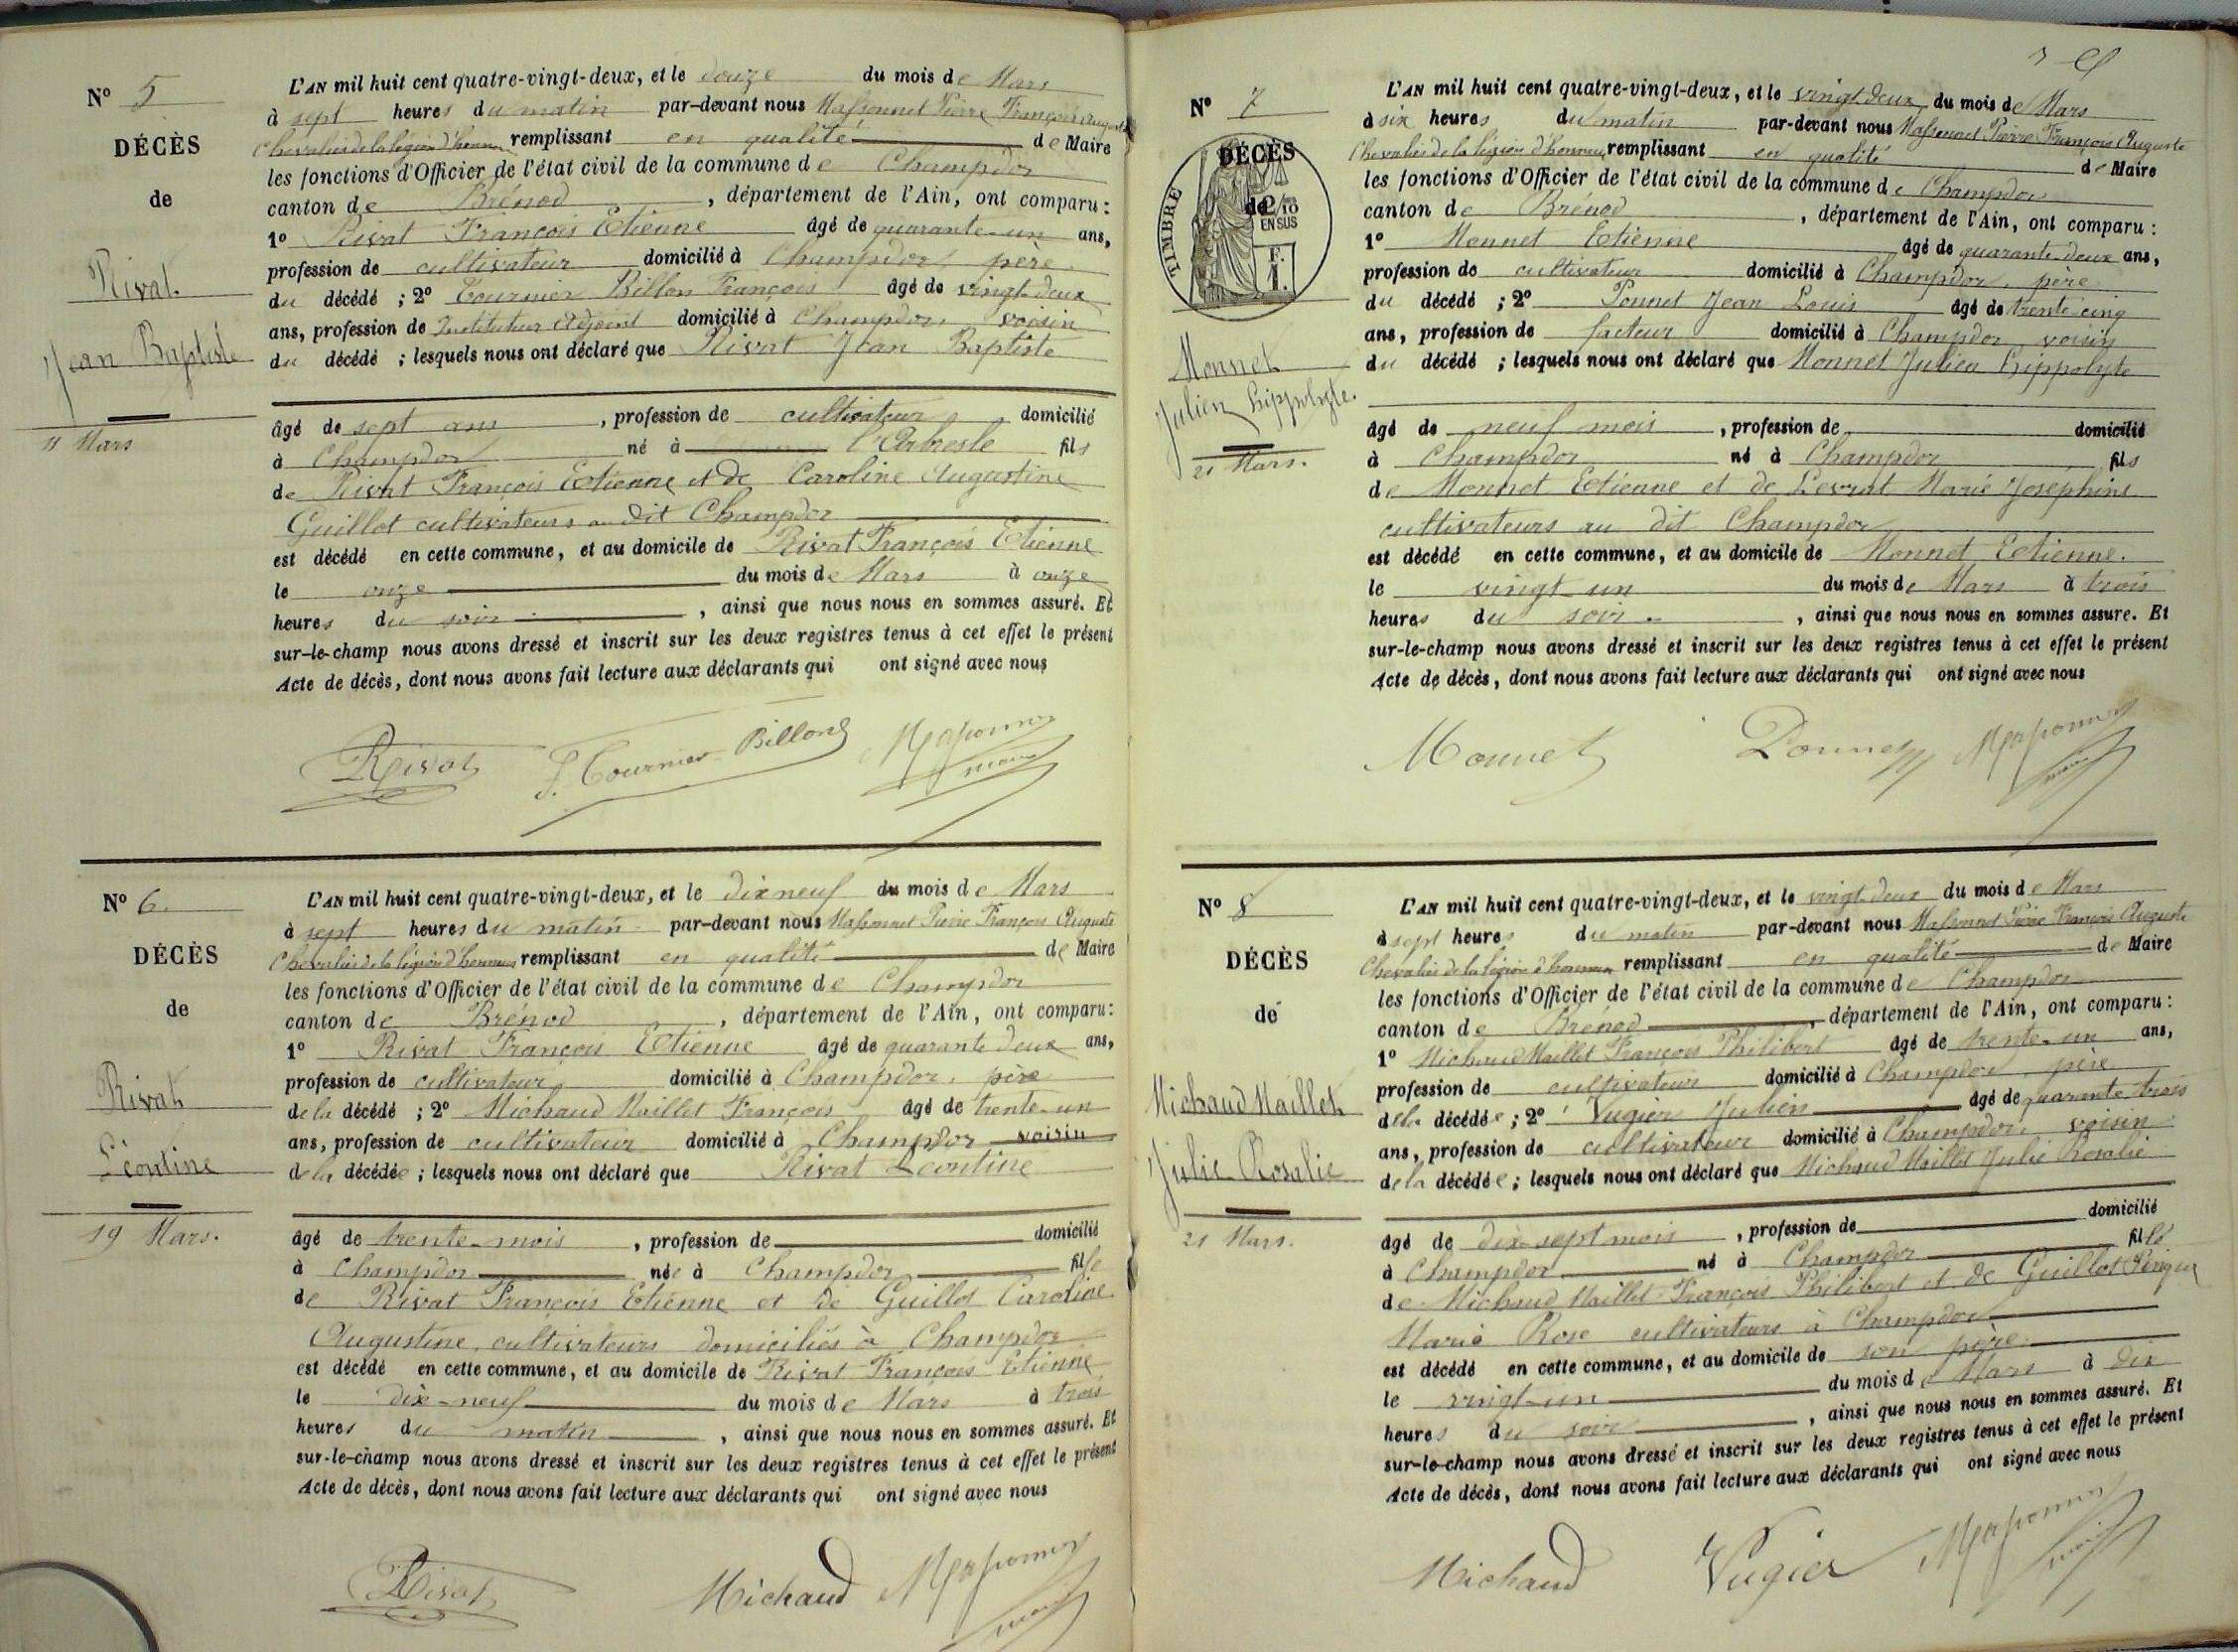 N° 5
DÉCÈS
de
Rivat
Jean Baptiste
11 Mars
L'AN mil huit cent quatre-vingt-deux, et le douze du mois de Mars
à sept heures du matin par-devant nous Massonnet Pierre François Auguste
Chevalier de la légion d'honneur remplissant en qualité de Maire
les fonctions d'Officier de l'état civil de la commune de Champdor
canton de Brénod, département de l'Ain, ont comparu :
1° Rivat François Etienne âgé de quarante-un ans,
profession de cultivateur domicilié à Champdor, père
du décédé ; 2° Tournier Billon François âgé de vingt-deux
ans, profession de Instituteur Adjoint domicilié à Champdor, voisin
du décédé ; lesquels nous ont déclaré que Rivat Jean Baptiste
âgé de sept ans, profession de cultivateur domicilié
à Champdor né à l'Arbresle fils
de Rivat François Etienne et de Caroline Augustine
Guillot cultivateurs au dit Champdor
est décédé en cette commune, et au domicile de Rivat François Etienne
le onze du mois de Mars à onze
heures du soir, ainsi que nous nous en sommes assuré. Et
sur-le-champ nous avons dressé et inscrit sur les deux registres tenus à cet effet le présent
Acte de décès, dont nous avons fait lecture aux déclarants qui ont signé avec nous
Rivat F. Tournier-Billon Massonnet
maire
N° 6.
DÉCÈS
de
Rivat
Léontine
19 Mars.
L'AN mil huit cent quatre-vingt-deux, et le dix neuf du mois de Mars
à sept heures du matin par-devant nous Massonnet Pierre François Auguste
Chevalier de la légion d'honneur remplissant en qualité de Maire
les fonctions d'Officier de l'état civil de la commune de Champdor
canton de Brénod, département de l'Ain, ont comparu :
1° Rivat François Etienne âgé de quarante deux ans,
profession de cultivateur domicilié à Champdor, père
de la décédé ; 2° Michaud Maillet François âgé de trente-un
ans, profession de cultivateur domicilié à Champdor voisin
de la décédée ; lesquels nous ont déclaré que Rivat Léontine
âgé de trente-mois, profession de domicilié
à Champdor née à Champdor fille
de Rivat François Etienne et de Guillot Caroline
Augustine, cultivateurs domiciliés à Champdor
est décédé en cette commune, et au domicile de Rivat François Etienne
le dix-neuf du mois de Mars à trois
heures du matin, ainsi que nous nous en sommes assuré. Et
sur-le-champ nous avons dressé et inscrit sur les deux registres tenus à cet effet le présent
Acte de décès, dont nous avons fait lecture aux déclarants qui ont signé avec nous
Rivat Michaud Massonnet
maire
N° 7
DÉCÈS
de
TIMBRE
2/10
EN SUS
F.
1.
Monnet
Julien hippolyte.
21 Mars.
L'AN mil huit cent quatre-vingt-deux, et le vingt deux du mois de Mars
à six heures du matin par-devant nous Massonnet Pierre François Auguste
Chevalier de la légion d'honneur, remplissant en qualité de Maire
les fonctions d'Officier de l'état civil de la commune de Champdor
canton de Brénod, département de l'Ain, ont comparu :
1° Monnet Etienne âgé de quarante-deux ans,
profession de cultivateur domicilié à Champdor, père
du décédé ; 2° Ponnet Jean Louis âgé de trente cinq
ans, profession de facteur domicilié à Champdor, voisin
du décédé ; lesquels nous ont déclaré que Monnet Julien hippolyte
âgé de neuf mois, profession de domicilié
à Champdor né à Champdor fils
de Monnet Etienne et de Levrat Marie Joséphine
cultivateurs au dit Champdor
est décédé en cette commune, et au domicile de Monnet Etienne.
le vingt un du mois de Mars à trois
heures du soir, ainsi que nous nous en sommes assure. Et
sur-le-champ nous avons dressé et inscrit sur les deux registres tenus à cet effet le présent
Acte de décès, dont nous avons fait lecture aux déclarants qui ont signé avec nous
Monnet Ponnet Massonnet
maire
N° 8
DÉCÈS
de
Michaud Maillet
Julie Rosalie
21 Mars.
L'AN mil huit cent quatre-vingt-deux, et le vingt-deux du mois de Mars
à sept heures du matin par-devant nous Massonnet Pierre François Auguste
Chevalier de la légion d'honneur remplissant en qualité de Maire
les fonctions d'Officier de l'état civil de la commune de Champdor
canton de Brénod, département de l'Ain, ont comparu :
1° Michaud Maillet François Philibert âgé de trente-un ans,
profession de cultivateur domicilié à Champdor, père
de la décédée ; 2° Vugier Julien âgé de quarante trois
ans, profession de cultivateur domicilié à Champdor, voisin
de la décédée ; lesquels nous ont déclaré que Michaud Maillet Julie Rosalie
âgé de dix-sept mois, profession de domicilié
à Champdor né à Champdor fille
de Michaud Maillet François Philibert et de Guillot
Marie Rose cultivateurs à Champdor
est décédé en cette commune, et au domicile de son père
le vingt-un du mois de Mars à dix
heures du soir, ainsi que nous nous en sommes assuré. Et
sur-le-champ nous avons dressé et inscrit sur les deux registres tenus à cet effet le présent
Acte de décès, dont nous avons fait lecture aux déclarants qui ont signé avec nous
Michaud Vugier Massonnet
maire